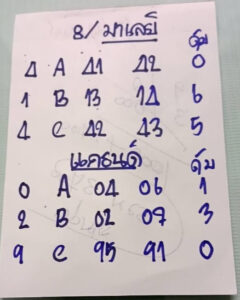 8/ มาเลย์ ดับ
4 A 41 42 0
1 B 13 14 6
4 C 42 43 5
แคธนต์ ดับ
0 A 04 06 1
2 B 02 07 3
9 C 95 91 0